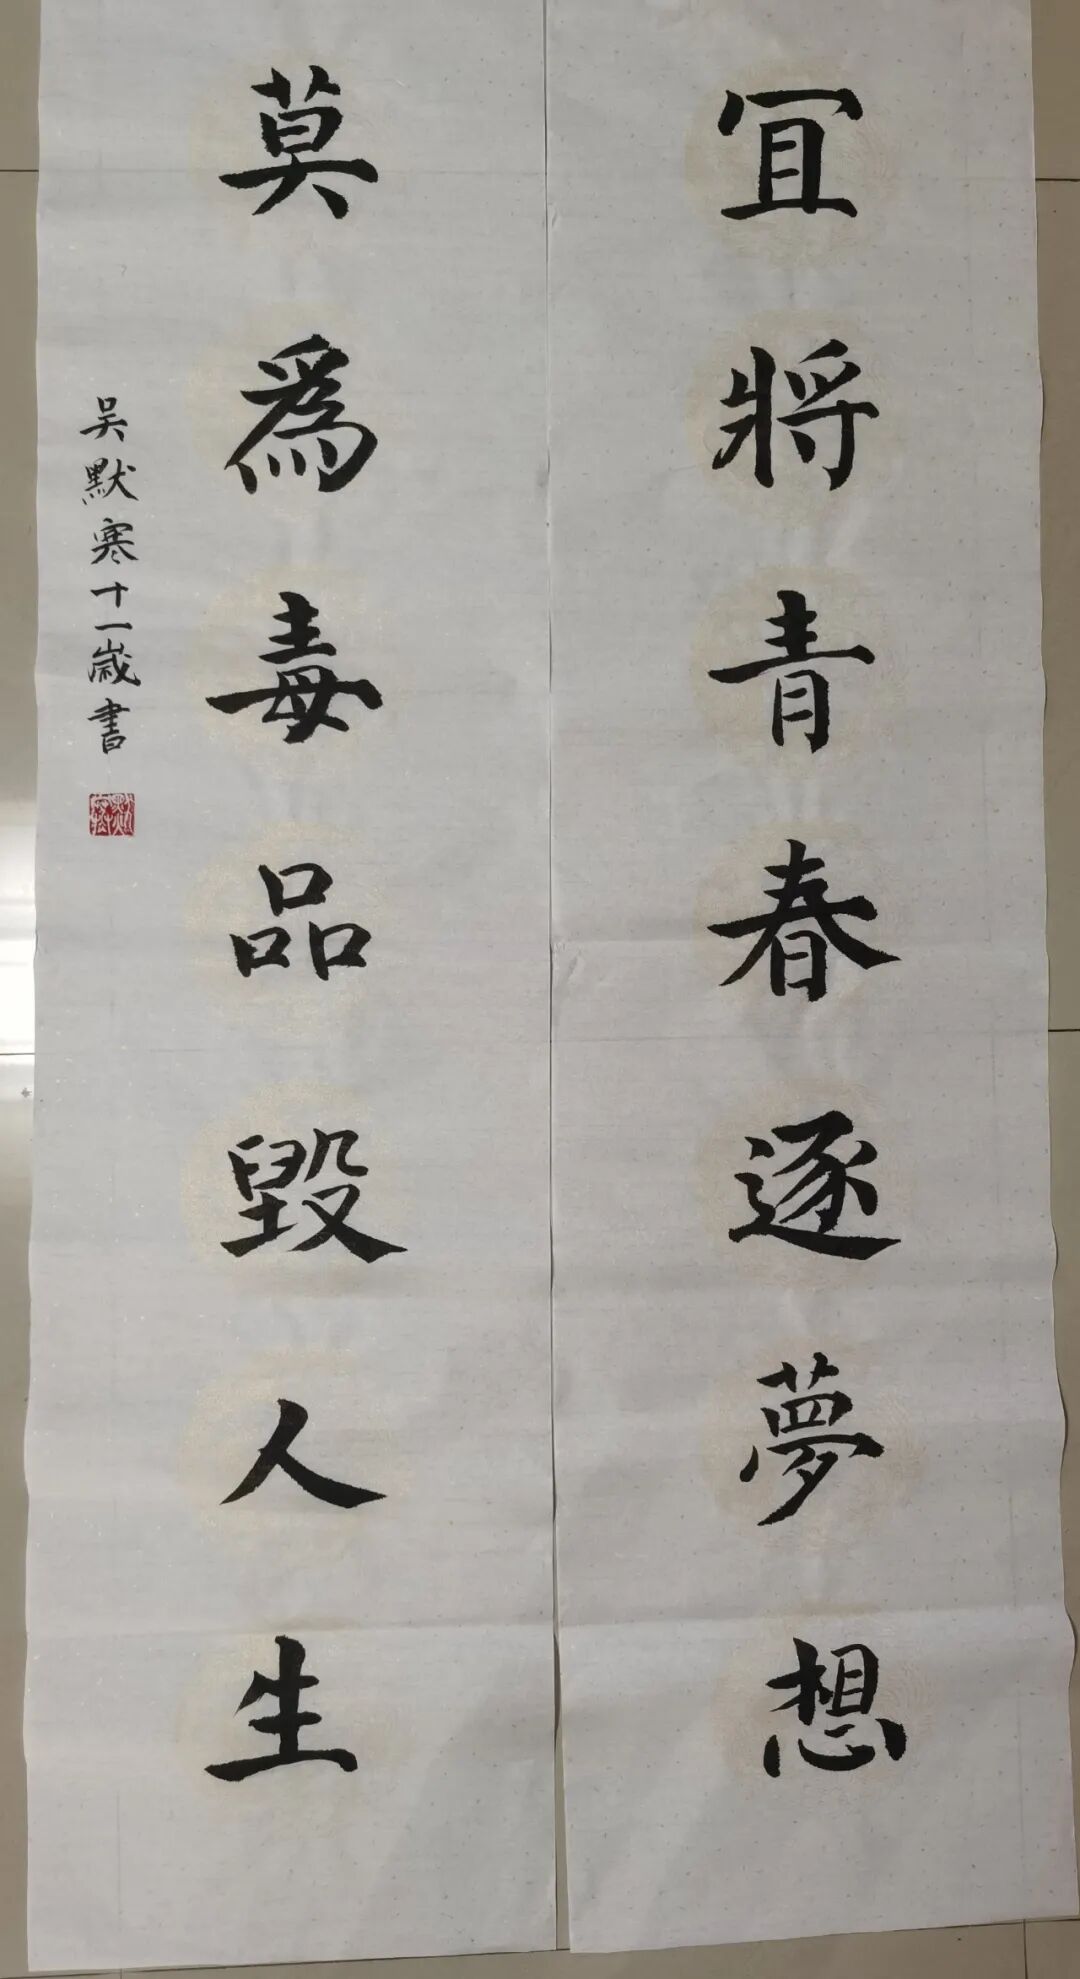 冝將青春逐夢想
莫為毒品毀人生
吴默寒十一歲書